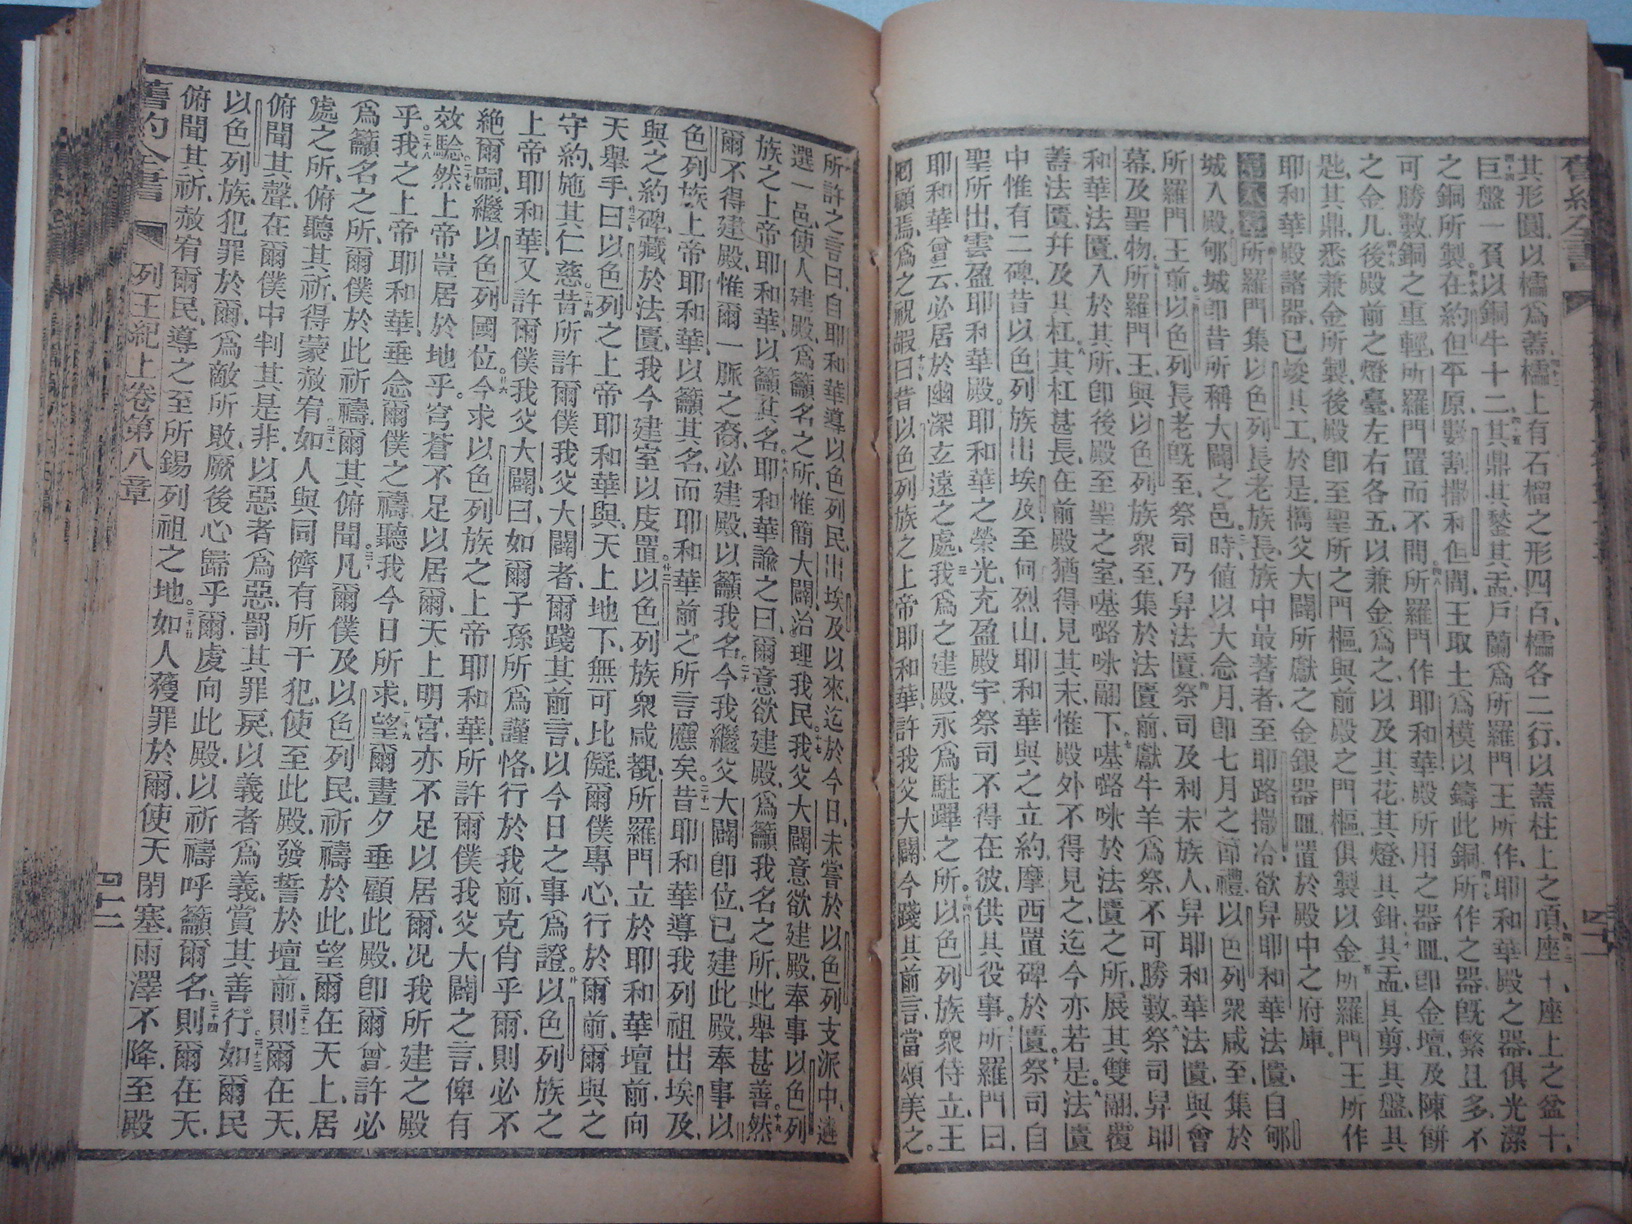 舊約全書
其形圓以櫺爲蓋櫺上有石榴之形四百櫺各二行以蓋柱上之頂座十座上之盆十
巨盤一負以銅牛十二其鼎其鏊其盂戶蘭爲所羅門王所作耶和華殿之器俱光潔
之銅所製在約但平原數割撒利但間王取土爲模以鑄此銅所作之器旣繁且多不
可勝數銅之重輕所羅門置而不問所羅門作耶和華殿所用之器皿卽金壇及陳餅
之金几後殿前之燈臺左右各五以兼金爲之以及其花其燈其鉗其盂其剪其盤其
匙其鼎悉兼金所製後殿卽至聖所之門樞與前殿之門樞俱製以金所羅門王所作
耶和華殿諸器已竣其工於是攜父大闢所獻之金銀器皿置於殿中之府庫
所羅門集以色列長老族長族中最著者至耶路撒冷欲舁耶和華法匱自郇
城入殿郇城卽昔所稱大闢之邑時値以大念月卽七月之節禮以色列衆咸至集於
所羅門王前以色列長老旣至祭司乃舁法匱祭司及利未族人舁耶和華法匱與會
幕及聖物所羅門王與以色列族衆至集於法匱前獻牛羊爲祭不可勝數祭司舁耶
和華法匱入於其所卽後殿至聖之室𠼻嚕咏翮下𠼻嚕咏於法匱之所展其雙翮覆
蓋法匱幷及其杠其杠甚長在前殿猶得見其末惟殿外不得見之迄今亦若是法匱
中惟有二碑昔以色列族出埃及至何烈山耶和華與之立約摩西置碑於匱祭司自
聖所出雲盈耶和華殿耶和華之榮光充盈殿宇祭司不得在彼供其役事所羅門曰
耶和華曾云必居於幽深玄遠之處我爲之建殿永爲駐蹕之所以色列族衆侍立王
回顧焉爲之祝嘏曰昔以色列族之上帝耶和華許我父大闢今踐其前言當頌美之
所許之言曰自耶和華導以色列民出埃及以來迄於今日未嘗於以色列支派中遴
選一邑使人建殿爲籲名之所惟簡大闢治理我民我父大闢意欲建殿奉事以色列
族之上帝耶和華以籲其名耶和華諭之曰爾意欲建殿爲籲我名之所此舉甚善然
爾不得建殿惟爾一脈之裔必建殿以籲我名今我繼父大闢卽位已建此殿奉事以
色列族上帝耶和華以籲其名而耶和華前之所言應矣昔耶和華導我列祖出埃及
與之約碑藏於法匱我今建室以庋置以色列族衆咸覩所羅門立於耶和華壇前向
天舉手曰以色列之上帝耶和華與天上地下無可比儗爾僕專心行於爾前爾與之
守約施其仁慈昔所許爾僕我父大闢者爾踐其前言以今日之事爲證以色列族之
上帝耶和華又許爾僕我父大闢曰如爾子孫所爲謹恪行於我前克肖乎爾則必不
絶爾嗣繼以色列國位今求以色列族之上帝耶和華所許爾僕我父大闢之言俾有
效驗然上帝豈居於地乎穹蒼不足以居爾天上明宮亦不足以居爾况我所建之殿
乎我之上帝耶和華垂念爾僕之禱聽我今日所求望爾晝夕垂顧此殿卽爾曾許必
爲籲名之所爾僕於此祈禱爾其俯聞凡爾僕及以色列民祈禱於此望爾在天上居
處之所俯聽其祈得蒙赦宥如人與同儕有所干犯使至此殿發誓於壇前則爾在天
俯聞其聲在爾僕中判其是非以惡者爲惡罰其罪戾以義者爲義賞其善行如爾民
以色列族犯罪於爾爲敵所敗厥後心歸乎爾虔向此殿以祈禱呼籲爾名則爾在天
俯聞其祈赦宥爾民導之至所錫列祖之地如人獲罪於爾使天閉塞雨澤不降至殿
舊約全書 列王紀上卷第八章 四十二